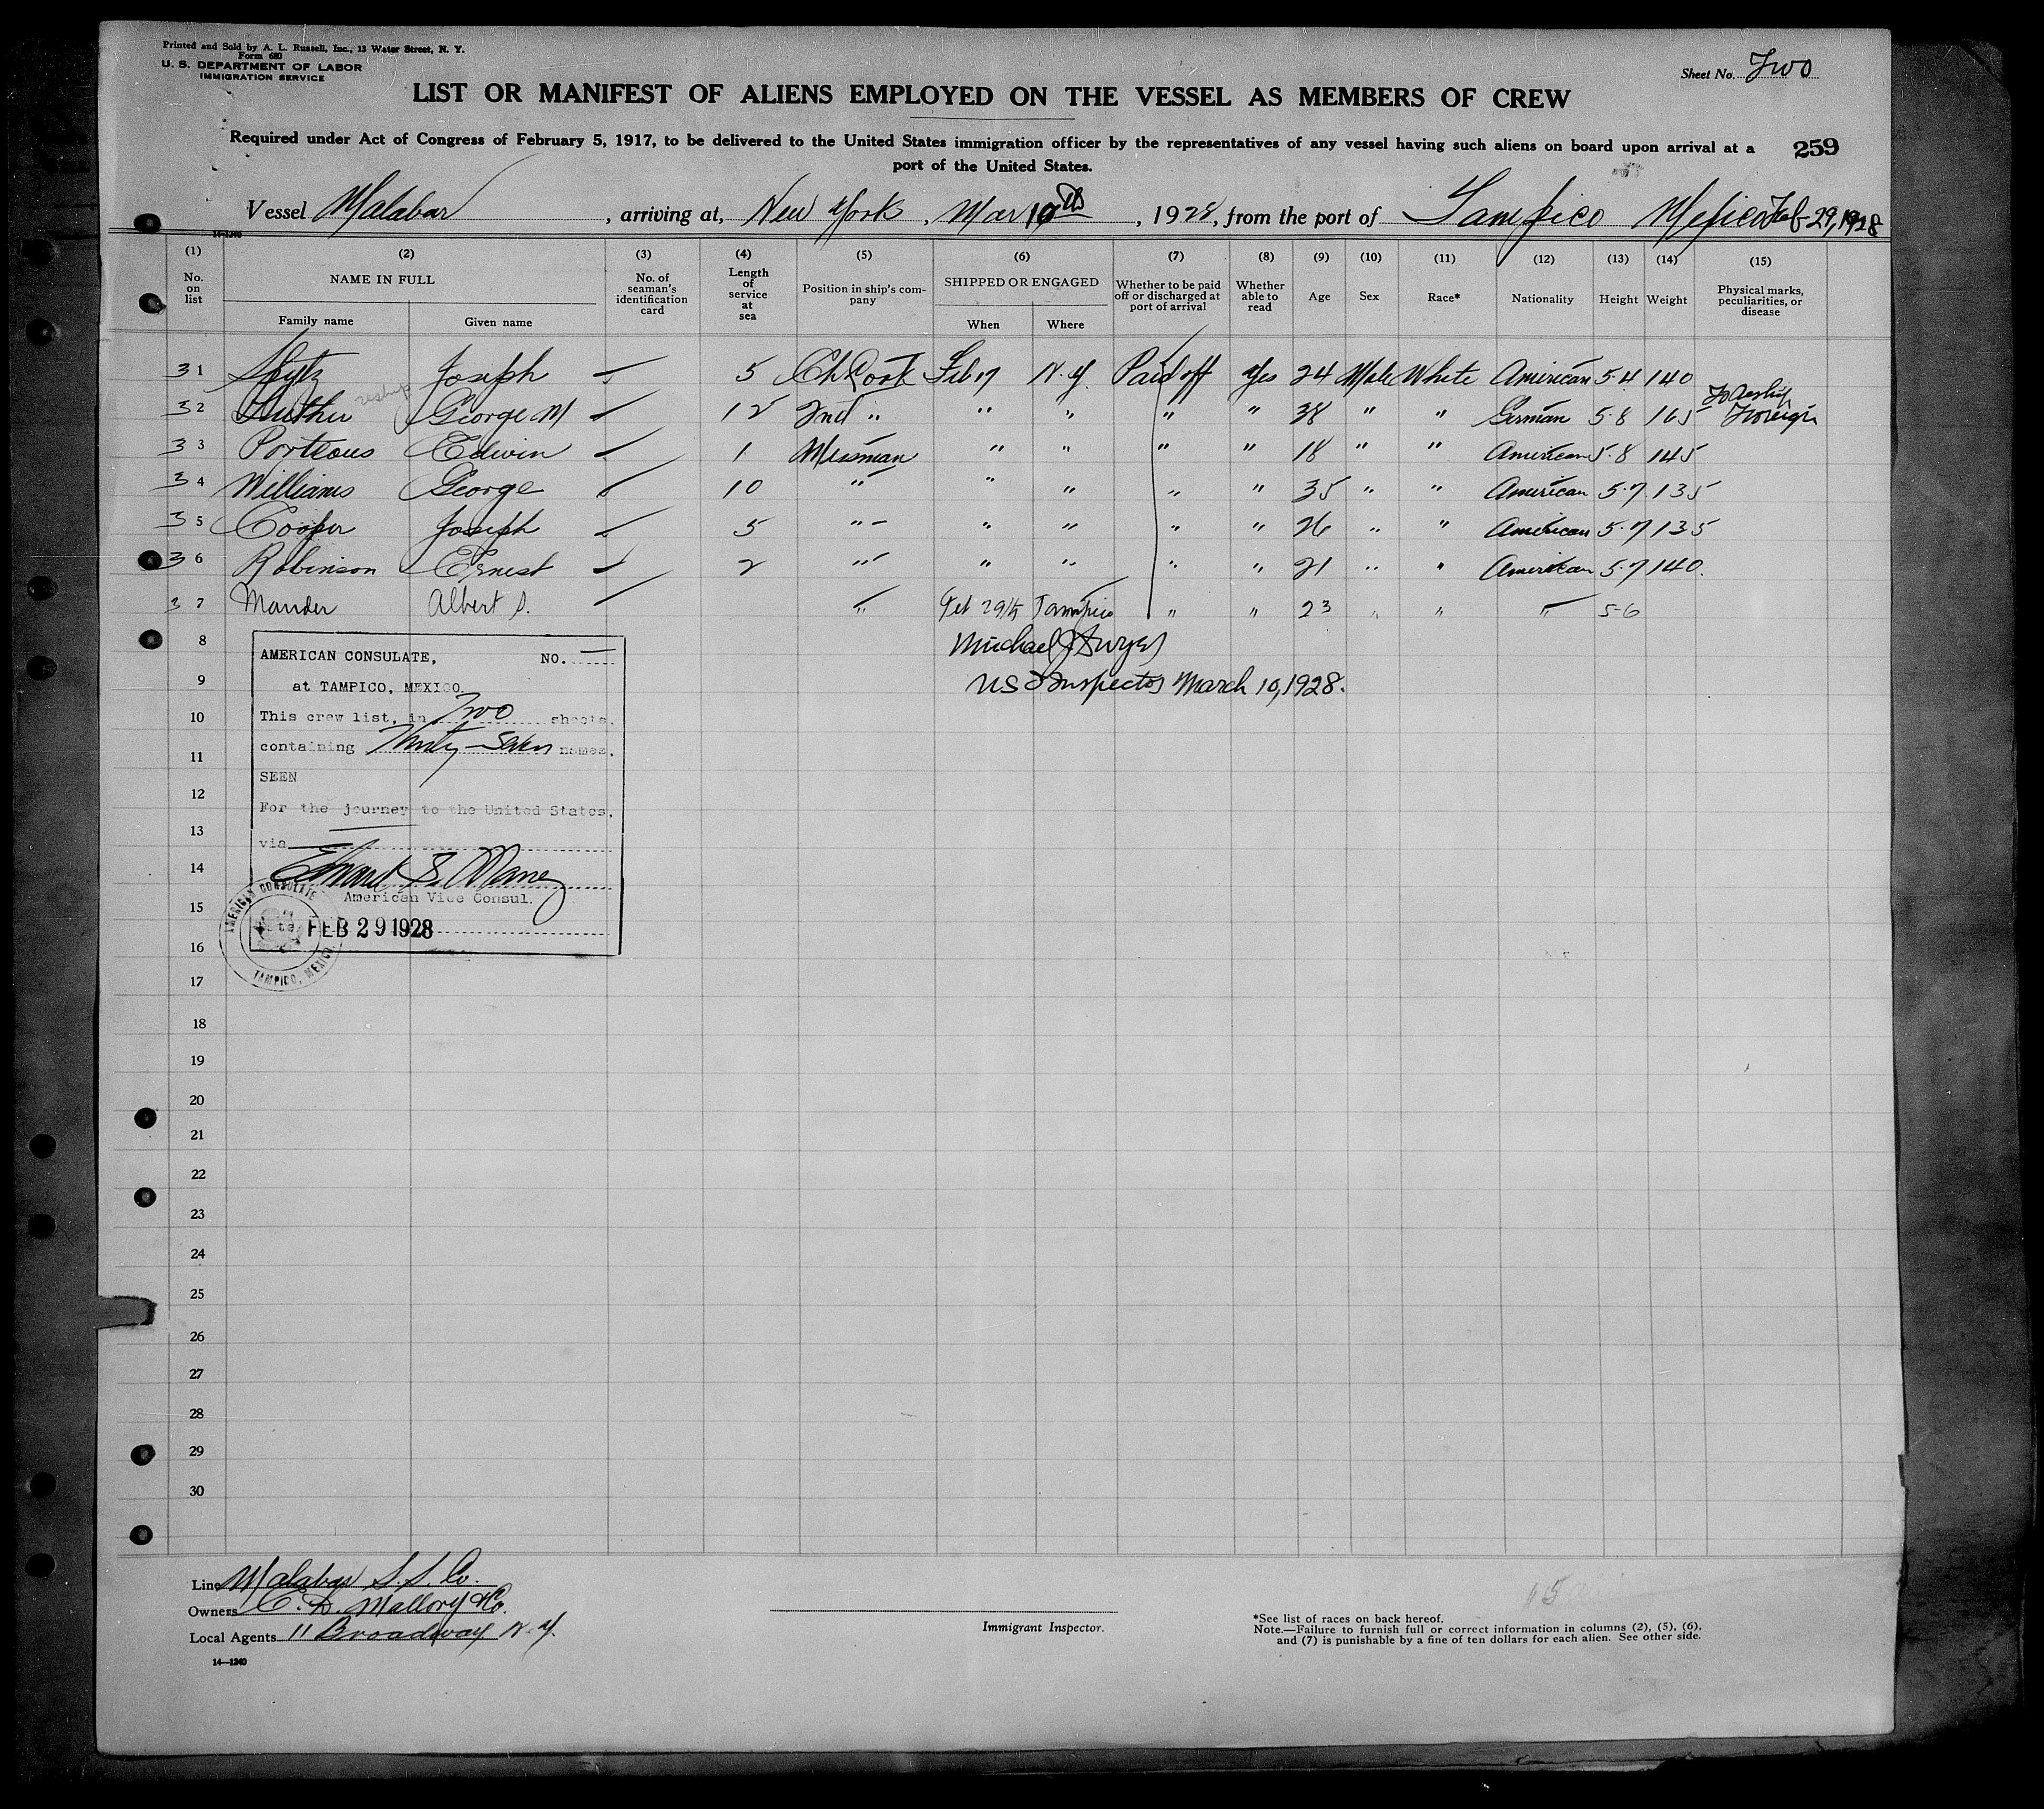 Printed and Sold by A. L. Russell, Inc., 13 Water Street, N. Y.
Form 680
U. S. DEPARTMENT OF LABOR
IMMIGRATION SERVICE
Sheet No. Two
LIST OR MANIFEST OF ALIENS EMPLOYED ON THE VESSEL AS MEMBERS OF CREW
Required under Act of Congress of February 5, 1917, to be delivered to the United States immigration officer by the representatives of any vessel having such aliens on board upon arrival at a
port of the United States.
259
Vessel Malabar, arriving at, New York, Mar 10th, 1928, from the port of Tampico Mexico Feb-29, 1928
14-1240
(1) (2) (3) (4) (5) (6) (7) (8) (9) (10) (11) (12) (13) (14) (15)
No. on list
NAME IN FULL
Family name
Given name
No. of seaman's identification card
Length of service at sea
Position in ship's company
SHIPPED OR ENGAGED
When
Where
Whether to be paid off or discharged at port of arrival
Whether able to read
Age
Sex
Race*
Nationality
Height
Weight
Physical marks, peculiarities, or disease
31 Joseph — 5 Ch Cook Feb 17 N.Y. Paid off Yes 24 Male White American 5-4 140
reship
32 Luther George M 12 2nd " " " " " 38 " " German 5-8 165 To Reship Foreign
33 Porteous Edwin 1 Messman " " " " 18 " " American 5-8 145
34 Williams George 10 " " " " " 35 " " American 5-7 135
35 Cooper Joseph 5 " " " " " 26 " " American 5-7 135
36 Robinson Ernest 2 " " " " " 21 " " American 5-7 140.
37 Mander Albert S. " Feb 29th Tampico " " 23 " " " 5-6
8 Michael J Dwyer
9 US Inspector March 10, 1928.
AMERICAN CONSULATE, NO. —
at TAMPICO, MEXICO.
10
This crew list, in Two sheets,
containing Thirty-seven names,
11
SEEN
12
For the journey to the United States,
13
via
14
Edward S. Maney
American Vice Consul.
15
Date FEB 29 1928
AMERICAN CONSULATE
TAMPICO, MEXICO.
16
17
18
19
20
21
22
23
24
25
26
27
28
29
30
Line Malabar S. S. Co.
Owners C. D. Mallory & Co.
Local Agents 11 Broadway N.Y.
14—1240
Immigrant Inspector.
*See list of races on back hereof.
Note.—Failure to furnish full or correct information in columns (2), (5), (6),
and (7) is punishable by a fine of ten dollars for each alien. See other side.